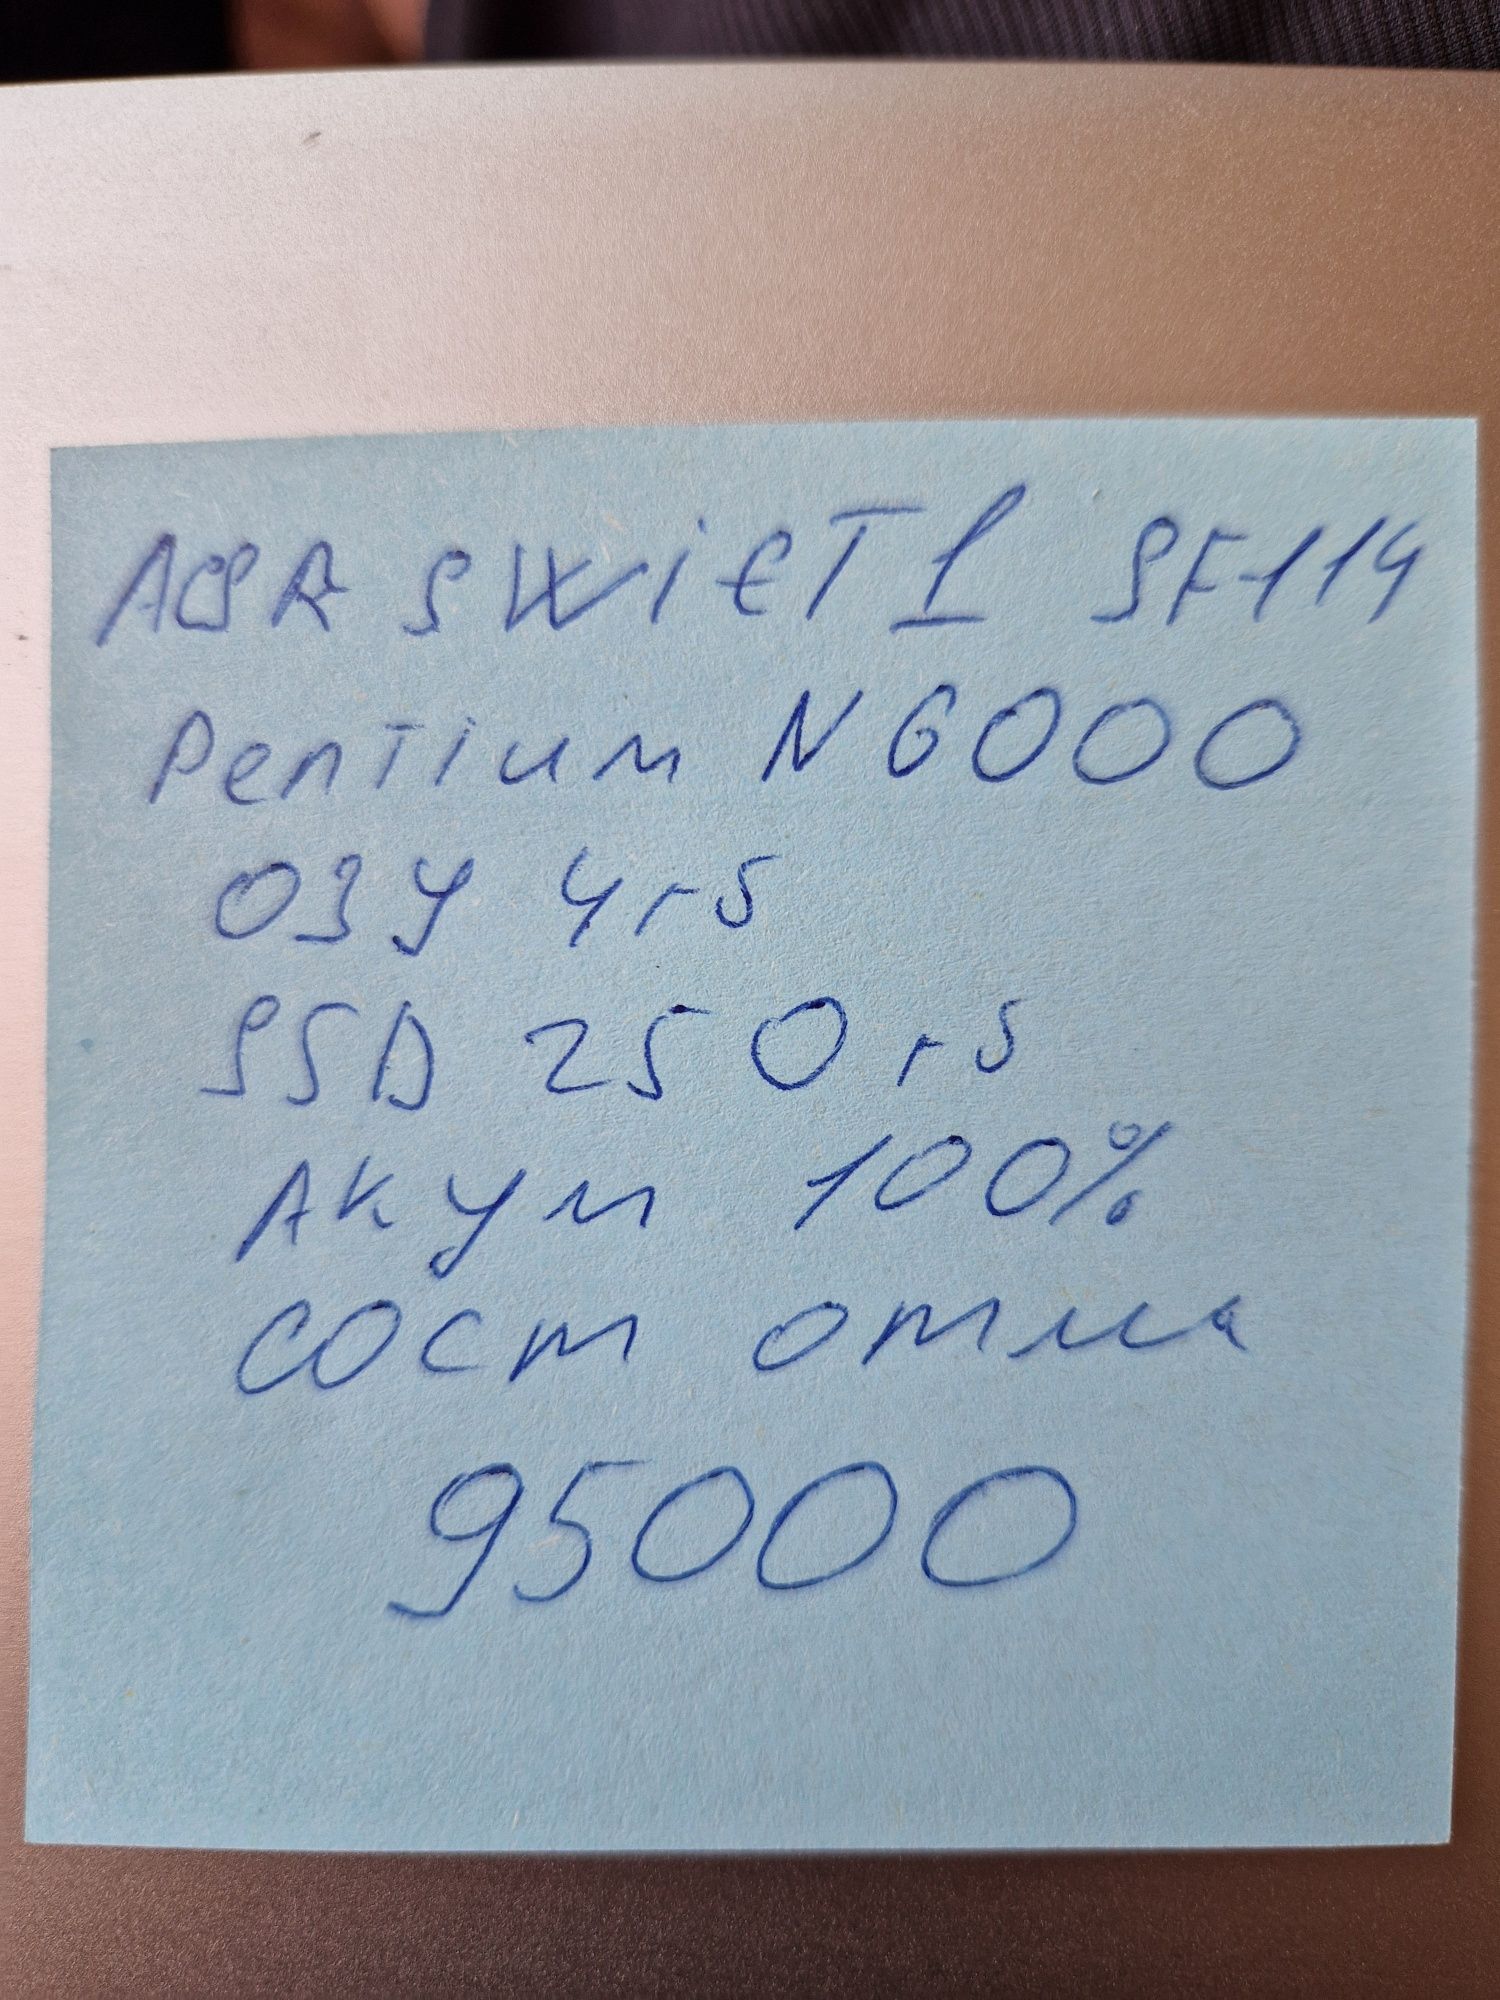 ACER SWIFT 1 SF114
Pentium N6000
ОЗУ 4гб
SSD 250гб
Акум 100%
сост отл
95000